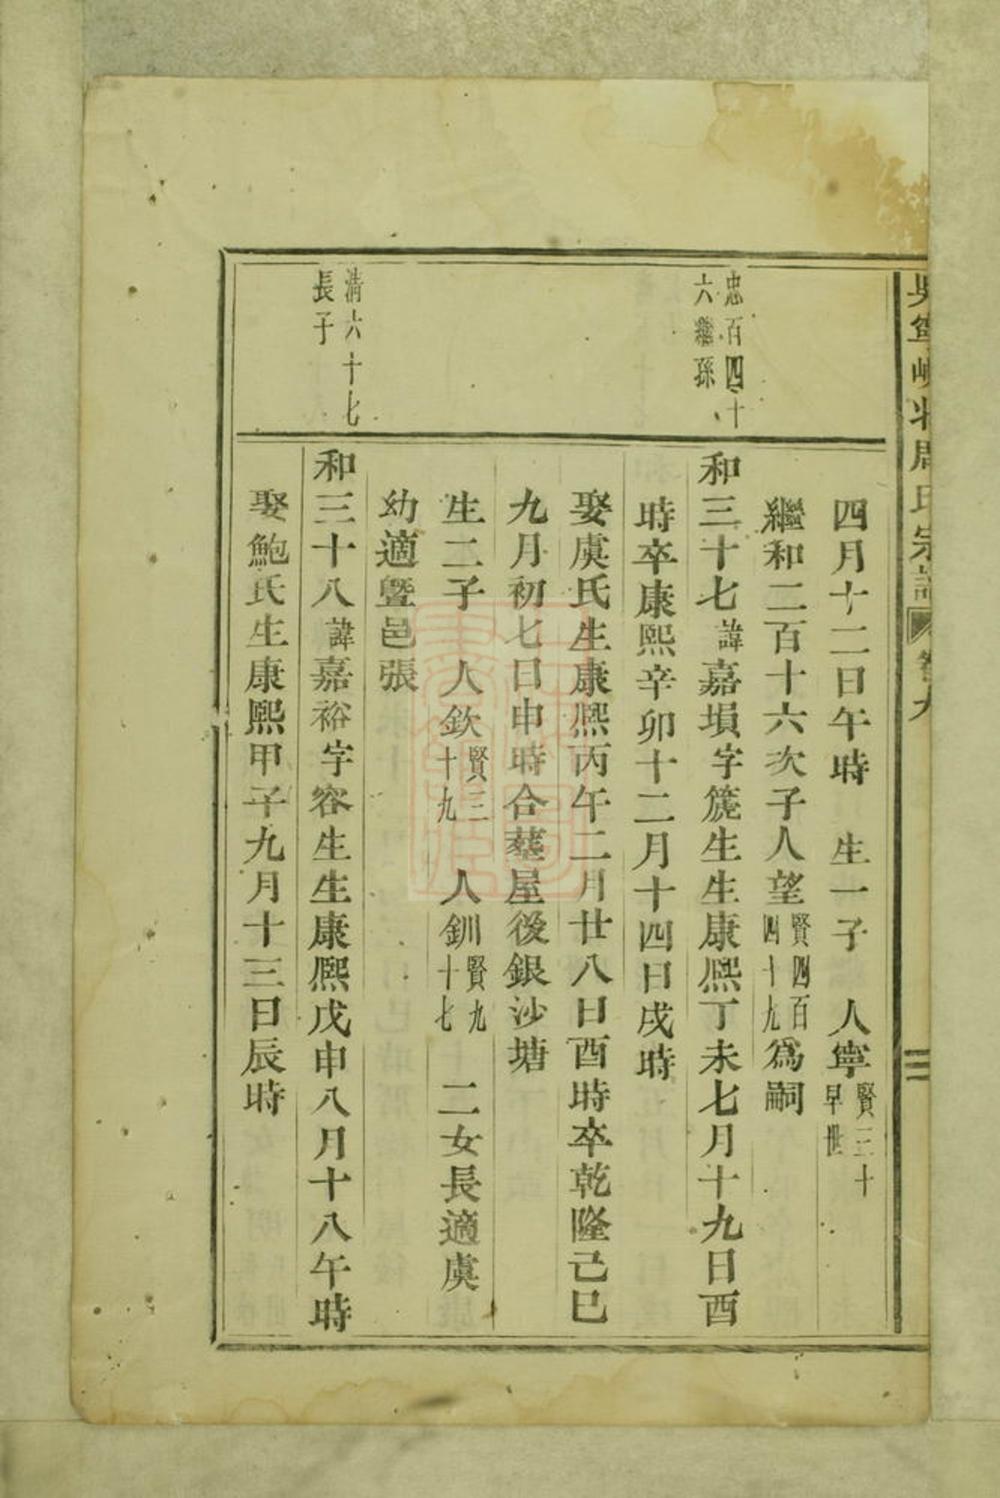 吳寧峴北周氏宗譜 卷九
四月十二日午時 生一子 人寧賢三十早世
繼和二百十六次子人望賢四百四十九為嗣
忠百四十六繼孫
和三十七諱嘉塤字篪生生康熙丁未七月十九日酉
時卒康熙辛卯十二月十四日戌時
娶虞氏生康熙丙午二月廿八日酉時卒乾隆己巳
九月初七日申時合葬屋後銀沙塘
生二子 人欽賢三十九 人釧賢九十七 二女長適虞
幼適暨邑張
清六十七長子
和三十八諱嘉裕字容生生康熙戊申八月十八午時
娶鮑氏生康熙甲子九月十三日辰時